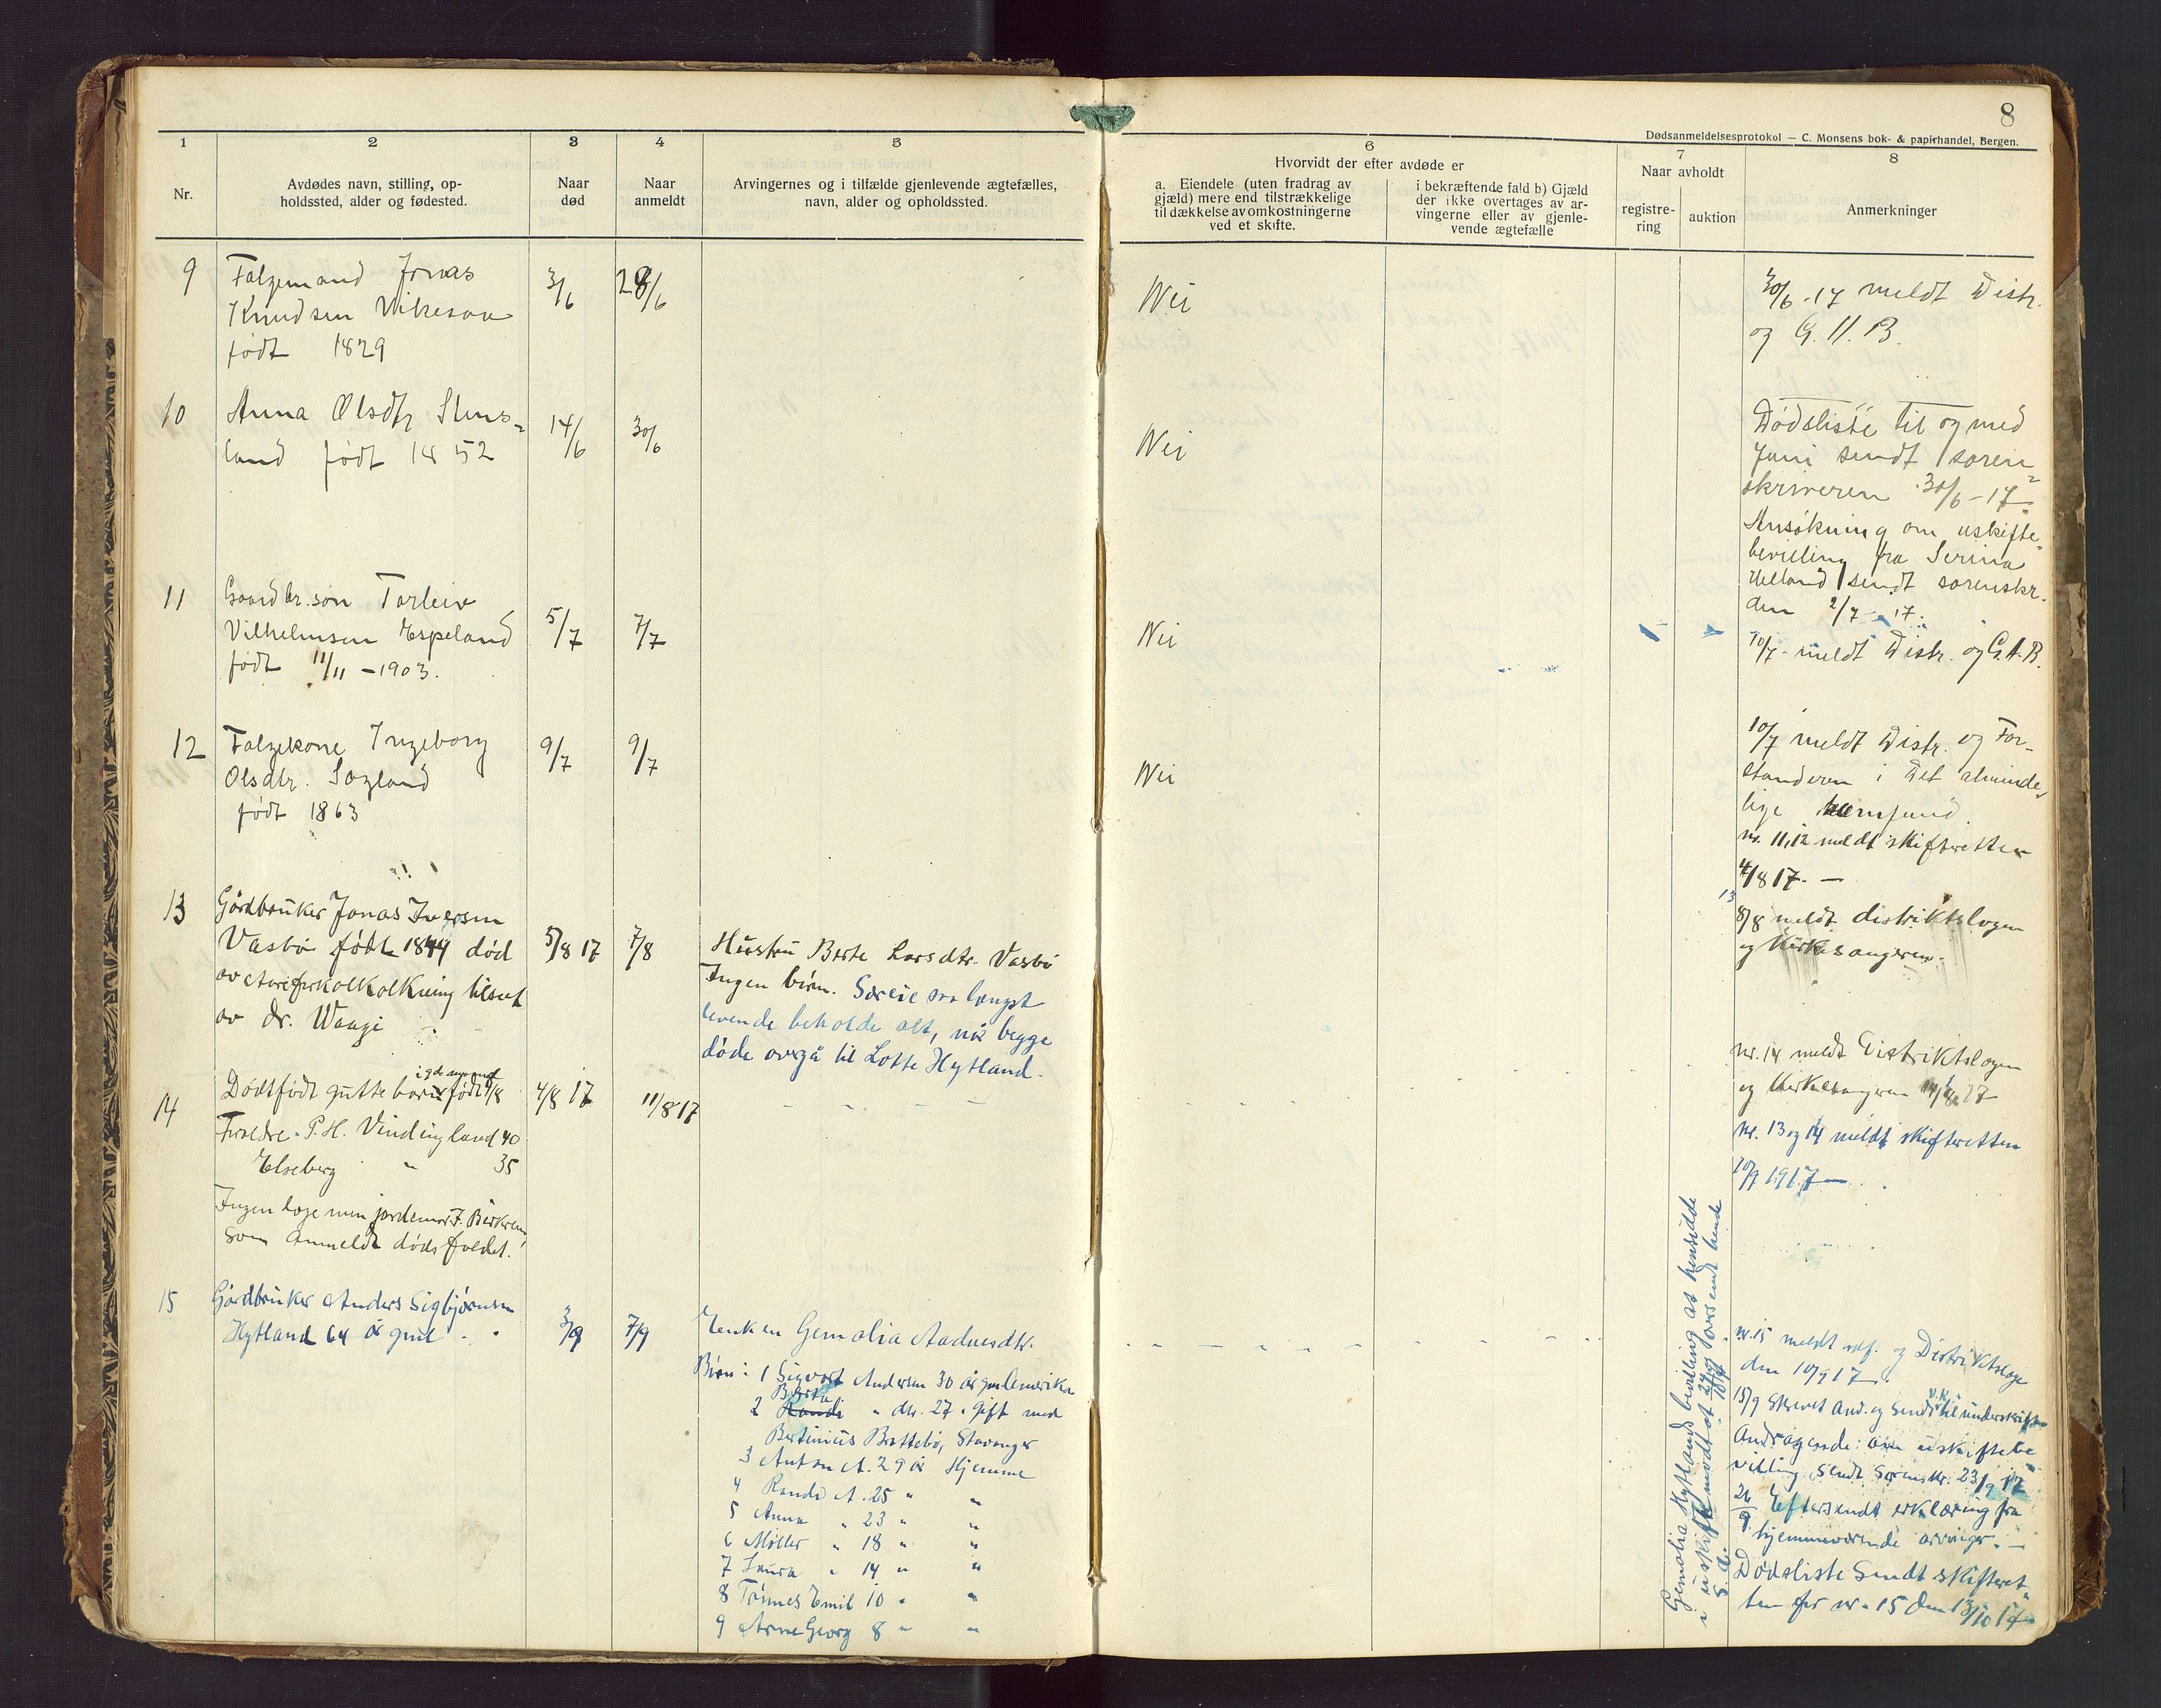 8
Dødsanmeldelsesprotokol — C. Monsens bok- & papirhandel, Bergen.
1
2
3
4
5
6
7
8
Nr.
Avdødes navn, stilling, op-
holdssted, alder og fødested.
Naar
død
Naar
anmeldt
Arvingernes og i tilfælde gjenlevende ægtefælles,
navn, alder og opholdssted.
Hvorvidt der efter avdøde er
a. Eiendele (uten fradrag av
gjæld) mere end tilstrækkelige
til dækkelse av omkostningerne
ved et skifte.
i bekræftende fald b) Gjæld
der ikke overtages av ar-
vingerne eller av gjenle-
vende ægtefælle
Naar avholdt
registre-
ring
auktion
Anmerkninger
9
Jonas
Knudsen Vikesaa
født 1829
3/6
28/6
Nei
30/6 -17 meldt Distr.
og
10
Anna Olsdtr Stens=
land født 1852
14/6
30/6
Nei
Dødsliste til og med
Juni sendt soren=
skriveren 30/6 - 17.
Ansøkning om uskifte
bevilling fra Serina
Helland sendt sorenskr.
den 2/7 - 17.
11
Gaardbr.søn Torleiv
Vilhelmsen Espeland
født 11/11 - 1903.
5/7
7/7
Nei
10/7 - meldt Distr. og
12
Ingeborg
Olsdtr. Sagland
født 1863
9/7
9/7
Nei
10/7 meldt Distr. og For-
standeren i Det alminde-
lige samfund.
nr. 11, 12 meldt skifteretten
4/8 17. —
13
Gårdbruker Jonas Iversen
Vasbø født 1849 død
av tilset
av dr. Waage
5/8 17
7/8
Hustru Berte Larsdtr. Vasbø
Ingen børn. længst
levende beholde alt, når begge
døde overgå til Lotte Hytland.
13
8/8 meldt distriktslægen
og Kirkesangeren.
14
Dødtfødt guttebarn født 4/8
Foreldre. P. H. Vindingland 40
Elseberg " 35
Ingen læge men jordemor F. Birkrem
som anmeldt dødsfaldet.
4/8 17
11/8 17
nr. 14 meldt Distriktslægen
og Kirkesangeren 14/8 17
nr. 13 og 14 meldt skifteretten
10/9 1917 —
15
Gårdbruker Anders Sigbjørnsen
Hytland 64 år gml.
3/9
7/9
Enken Gemalia Aadnesdtr.
Børn: 1 Sigvart Andersen 30 år gml Amerika
Berta
2 Randi " dtr. 27 " gift med
Bertinius Brattebø, Stavanger
3 Anton A. 29 år Hjemme
4 Randi A. 25 " "
5 Anna " 23 " "
6 Møller " 18 " "
7 Laura " 14 " "
8 Tønnes Emil 10 " "
9 Arne Georg 8 " "
Gemalia Hytlands bevilling at hensidde
i uskifte mottat 27/9 og oversendt hende
nr. 15 meldt og Distriktslæge
den 10/9 17.
15/9 Skrevet And. og sendt til underskrift
Andragende: om uskiftebe
villing sendt Sorenskr. 23/9 17
26/9 Eftersendt erklæring fra
hjemmeværende arvinger. —
Dødsliste sendt skifteret
ten for nr. 15 den 13/10 17